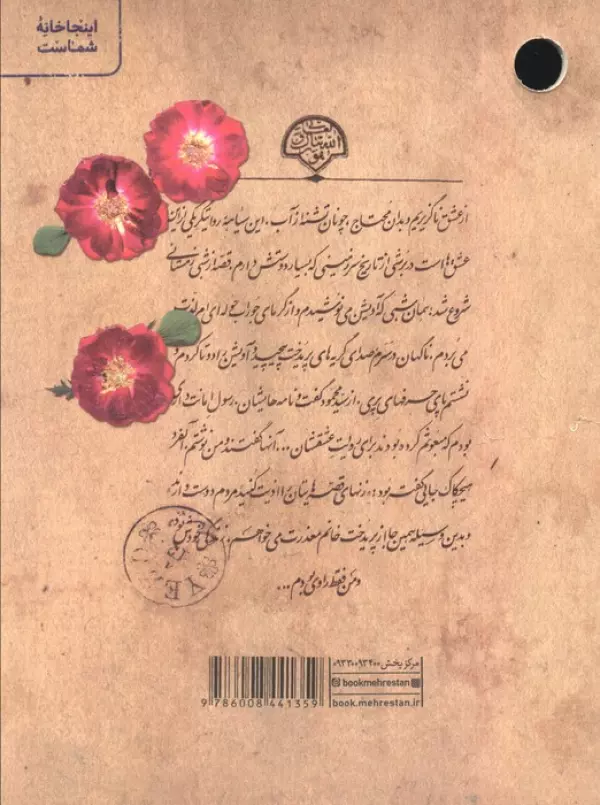 اینجا خانهٔ
شماست
از عشق ناگزیریم و بدان محتاج، چونان تشنه از آب. این سیاهه روایتگر یکی از این
عشق‌هاست در برشی از تاریخ سرزمینی که بسیار دوستش دارم. قصه از شبی زمستانی
شروع شد؛ همان شبی که آویشن می نوشیدم و از گرمای جوراب حوله ای ام لذت
می بردم. ناگهان در سرم صدای گریه های پریدخت پیچید و آویشن را وا نهادم و
نشستم پای حرفهای پری. از سید محمود گفت و نامه هایشان. رسول امانت دار
بودم که مبعوثم کرده بودند برای روایت عشقشان... آنها گفتند و من نوشتم. آلفرد
هیچکاک جایی گفت بود: «زنهای قصه هایتان را اذیت کنید مردم دوست دارند»
و بدین وسیله همین جا از پریدخت خانم معذرت می خواهم.
و من فقط راوی بودم...
مرکز پخش ۰۹۳۳۰۰۹۳۲۰۰
bookmehrestan
book.mehrestan.ir
9 786008 441359